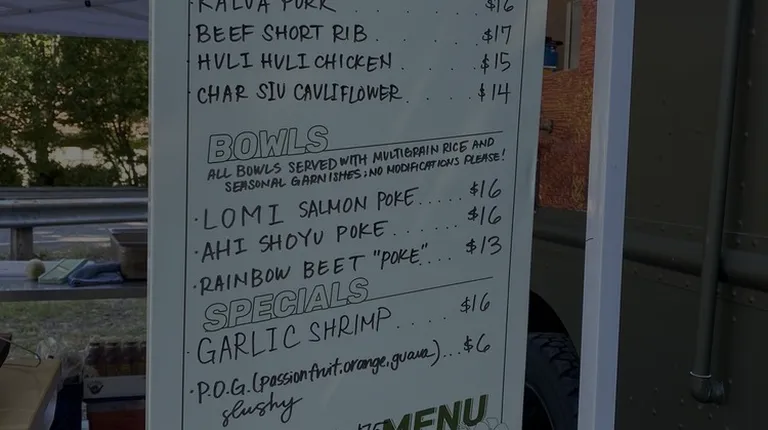 KALUA PORK . . . . $16
BEEF SHORT RIB . . . . $17
HULI HULI CHICKEN . . . . $15
CHAR SIU CAULIFLOWER . . . . $14
BOWLS
ALL BOWLS SERVED WITH MULTIGRAIN RICE AND
SEASONAL GARNISHES; NO MODIFICATIONS PLEASE!
· LOMI SALMON POKE ..... $16
· AHI SHOYU POKE ..... $16
· RAINBOW BEET "POKE" ... $13
SPECIALS
GARLIC SHRIMP . . . . $16
· P.O.G. (passionfruit, orange, guava) ... $6
slushy
MENU